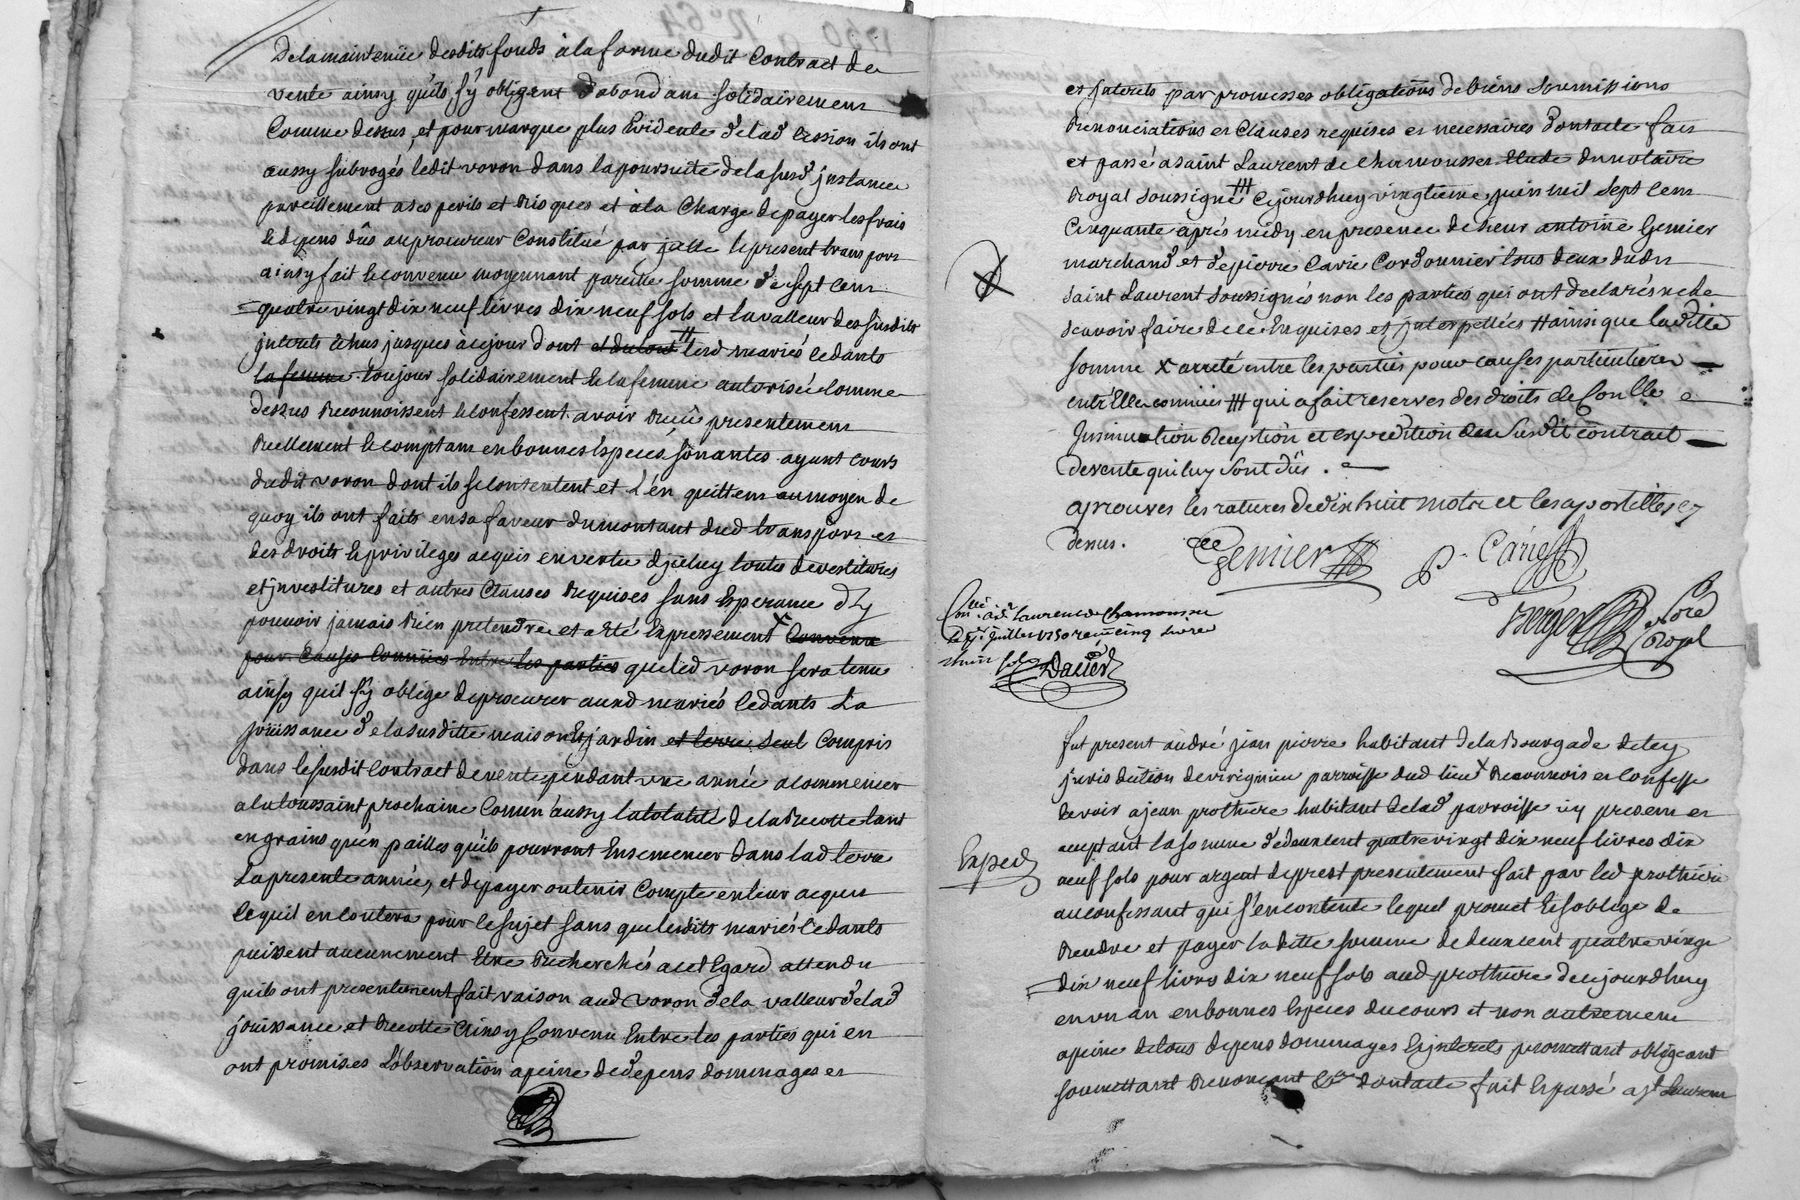 De la maintenüe desdits fonds à la forme dudit Contract de
vente ainsy quils s'y obligent d'abondant solidairement
Comme dessus, et pour marque plus Evidente de lad Cession ils ont
aussy subrogés ledit voron dans la poursuitte de la susd instance
pareillement a ses perils et Risques et à la Charge de payer les frais
et depens dûs au procureur Constitué par jcelle le present transport
ainsy fait et convenu moyennant pareille somme de sept cent
quatre vingt dix neuf livres dix neuf sols et la valleur des susdits
jnterets Echus jusques à cejour dont et du tout # lesd mariés Cedants
la femme toujour solidairement et la femme autorisée Comme
dessus Reconnoissent et confessent avoir Reçû presentement
Reellement et comptant en bonnes Especes sonantes ayant cours
dudit voron dont ils se contentent et l'en quittent au moyen de
quoy ils ont faits en sa faveur du montant dud transport et
des droits et privileges acquis en vertu d'jceluy toutes devestitures
et jnvestitures et autres Clauses Requises sans Esperance d'y
pouvoir jamais Rien pretendre et a eté Expressement x Convenu
pour Causes Connües Entre les parties que led voron sera tenu
ainsy quil s'y oblige de procurer auxd mariés Cedants La
joüissance de la susditte maison et jardin et terre, seul Compris
dans le susdit Contract de vente pendant une année a commencer
a la toussaint prochaine Comm'aussy la totalité de la Recotte tant
en grains qu'en pailles qu'ils pourront Ensemencer dans lad terre
La presente année, et de payer ou tenir Compte en leur acquit
ce quil en coutera pour le sujet sans que lesdits mariés Cedants
puissent aucunement Etre Recherchés a cet Egard attendu
quils ont presentement fait raison aud voron de la valleur de lad
joüissance et Recotte Ainsy Convenu Entre les parties qui en
ont promises L'observation a peine de depens dommages et
et jnterets par promesses obligations de biens soumissions
Renonciations et Clauses requises et necessaires dont acte fait
et passé a saint Laurent de Chamousset Etude du notaire
Royal soussigné ### Cejourdhuy vingtieme juin mil sept cent
Cinquante après midy en presence de sieur antoine Gemier
marchand et de pierre Carié Cordonnier tous deux dudit
saint Laurent soussignés non les parties qui ont declarés ne le
scavoir faire de ce Enquises et jnterpellées # ainsi que laditte
somme x arreté entre les parties pour causes particulieres
entr'Elles connües ### qui a fait reserves des droits de Conlle
jnsinuation Reception et expedition du susdit contract
de vente qui luy sont dûs.
aprouvés les ratures de dix huit mots et les apostilles cy
dessus.
Gemier P. Carié
Berger no.re Royal
Con.lé à S.t Laurent de Chamousset
le juillet 1750 reçu cinq livres
huit sols Dacier
fut present andré jean pierre habitant de la Bourgade de
jurisdiction de virignieu parroisse dud lieu x Reconnois et Confesse
devoir a jean prothiere habitant de lad parroisse icy present et
acceptant la somme de deux cent quatre vingt dix neuf livres dix
neuf sols pour argent de prest presentement fait par led prothiere
Exped
au confessant qui s'en contente lequel promet et s'oblige de
Rendre et payer laditte somme de deux cent quatre vingt
dix neuf livres dix neuf sols aud prothiere de cejourdhuy
en un an en bonnes Especes du cours et non autrement
a peine de tous depens dommages et jnterets promettant obligeant
soumettant Renonçant &a dont acte fait et passé a st Laurent